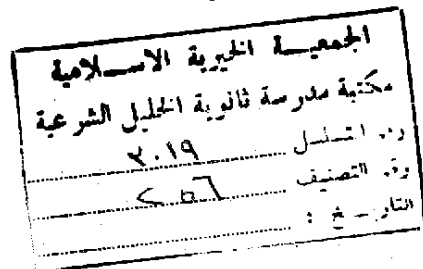 الجمعيـة الخيرية الاســلامية
مكتبة مدرسة ثانوية الخليل الشرعية
رقم التسلسل ٢٠١٩
رقم التصنيف
التاريخ :